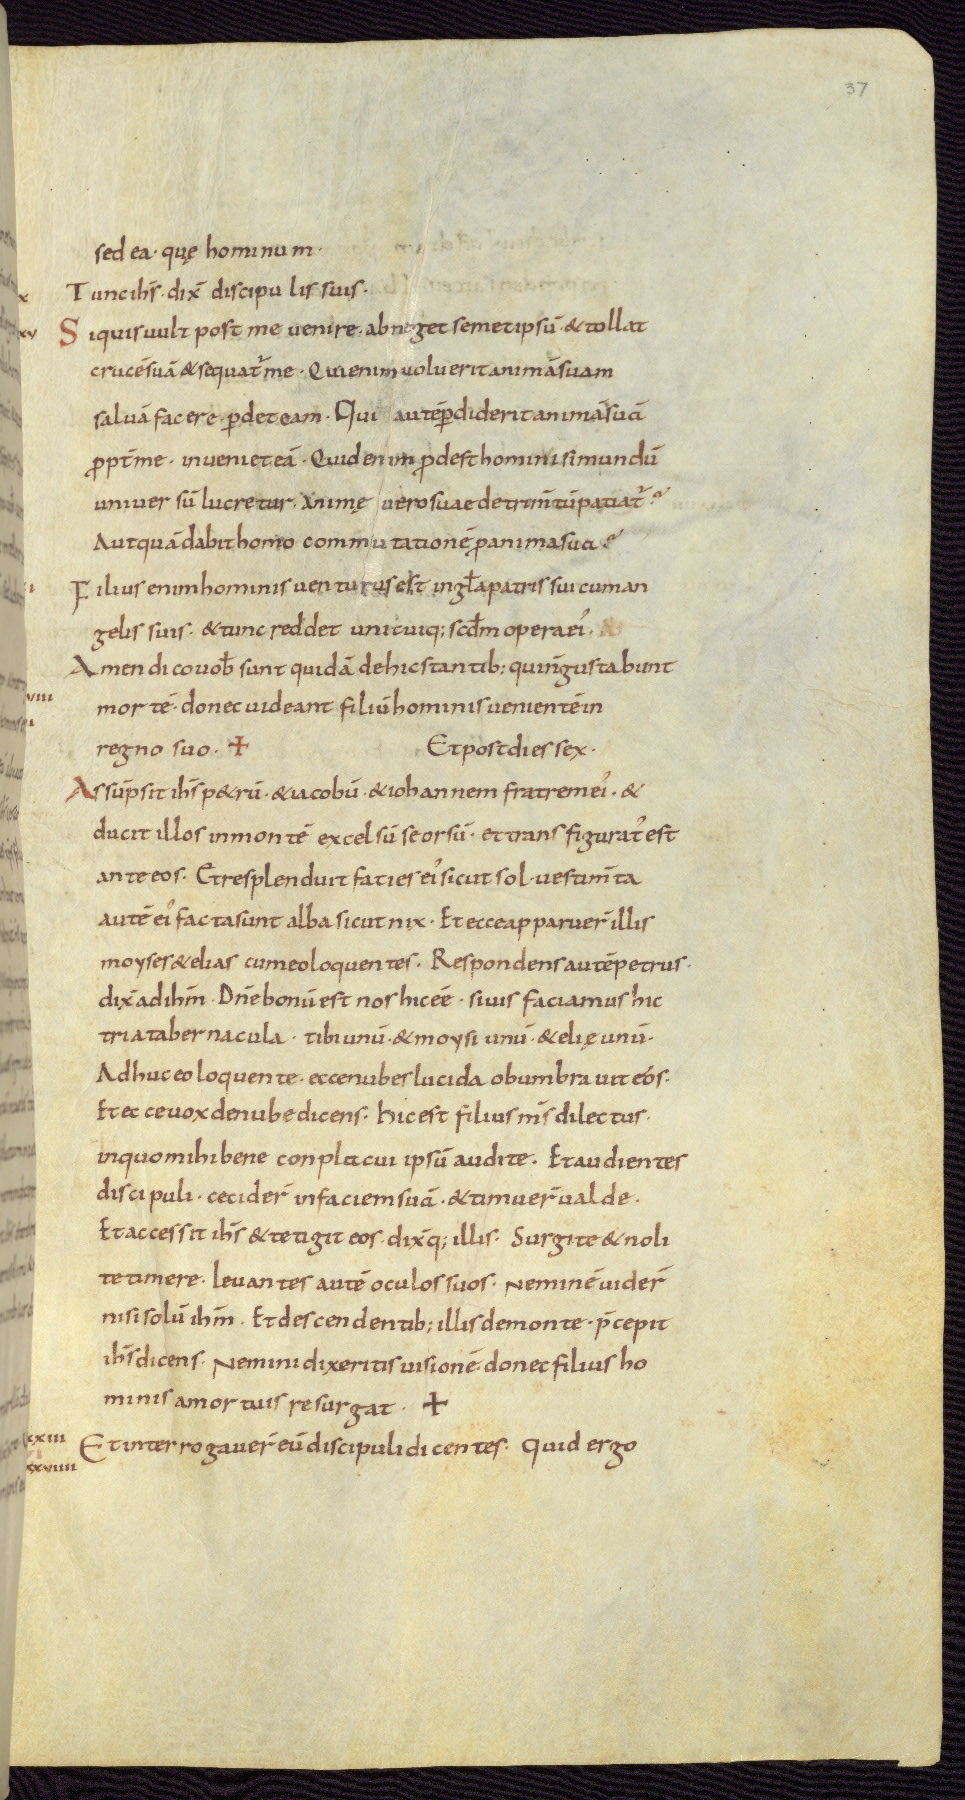 37
sed ea· quę hominum·
Tunc ihs̄· dix̄ discipulis suis·
Si quis vult post me venire· abneget semetipsū· & tollat
crucē suā & sequat᷑ me· Qui enim voluerit animā suam
salvā facere· ꝑdet eam· Qui autē ꝑdiderit animā suā
ꝓpt̄ me· inveniet eā· Quid enim ꝓdest homini si mundū
universū lucretur· animę vero suae detrim̄tū patiat᷑?
Aut quā dabit homo commutationē ꝓ anima sua?
Filius enim hominis venturus est in gl̄a patris sui cum an
gelis suis· & tunc reddet unicuiq; scd̄m opera ei᾽·
Amen dico vob̄ sunt quidā de hic stantib; qui n̄ gustabunt
viii
mortē· donec videant filiū hominis venientē in
regno suo· + Et post dies sex·
Assūpsit ihs̄ p&rū· & iacobū· & iohannem fratrem ei᾽· &
ducit illos in montē excelsū seorsū· et transfigurat᾽ est
ante eos· Et resplenduit facies ei᾽ sicut sol· vestim̄ta
autē ei᾽ facta sunt alba sicut nix· Et ecce apparuer̄ illis
moyses & elias cum eo loquentes· Respondens autē petrus·
dix̄ ad ihm̄· Dn̄e bonū est nos hic eē· si vis faciamus hic
tria tabernacula· tibi unū· & moysi unū· & elię unū·
Adhuc eo loquente· ecce nubes lucida obumbravit eos·
Et ecce vox de nube dicens· hic est filius ms̄ dilectus·
in quo mihi bene conplacui ipsū audite· Et audientes
discipuli· cecider̄ in faciem suā· & timuer̄ valde·
Et accessit ihs̄ & tetigit eos· dix̄q; illis· Surgite & noli
te timere· levantes autē oculos suos· neminē vider̄
nisi solū ihm̄· Et descendentib; illis de monte· p̄cepit
ihs̄ dicens· Nemini dixeritis visionē donec filius ho
minis a mortuis resurgat· +
Et interrogaver̄ eū discipuli dicentes· Quid ergo